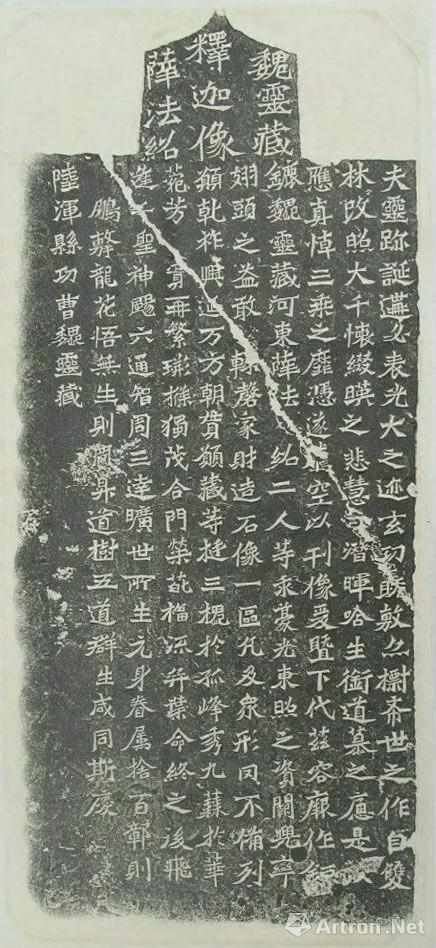 魏靈藏
釋迦像
薛法紹
夫靈跡誕遘必表光大之迹玄功既敷亦標希世之作自雙
林改照大千懷綴暎之悲慧潛暉唅生銜道慕之應是
應真悼三乘之靡憑遂騰空以刊像爰暨下代茲容厥作鉅
鏕魏靈藏河東薛法紹二人等求豪光東照之資闕兜率
翅頭之益敢輒磬家財造石像一區凡及眾形罔不備列
願乾祚興延万方朝貫願藏等挺三槐於孤峰秀九蕀於華
菀芳實再繁荊條獨茂合門榮葩福流奕葉命終之後飛
逢千聖神颺六通智周三達曠世所生元身眷屬捨百鄣則
鵬擊龍花悟無生則鳳昇道樹五道群生咸同斯慶
陸渾縣功曹魏靈藏
Artron.Net